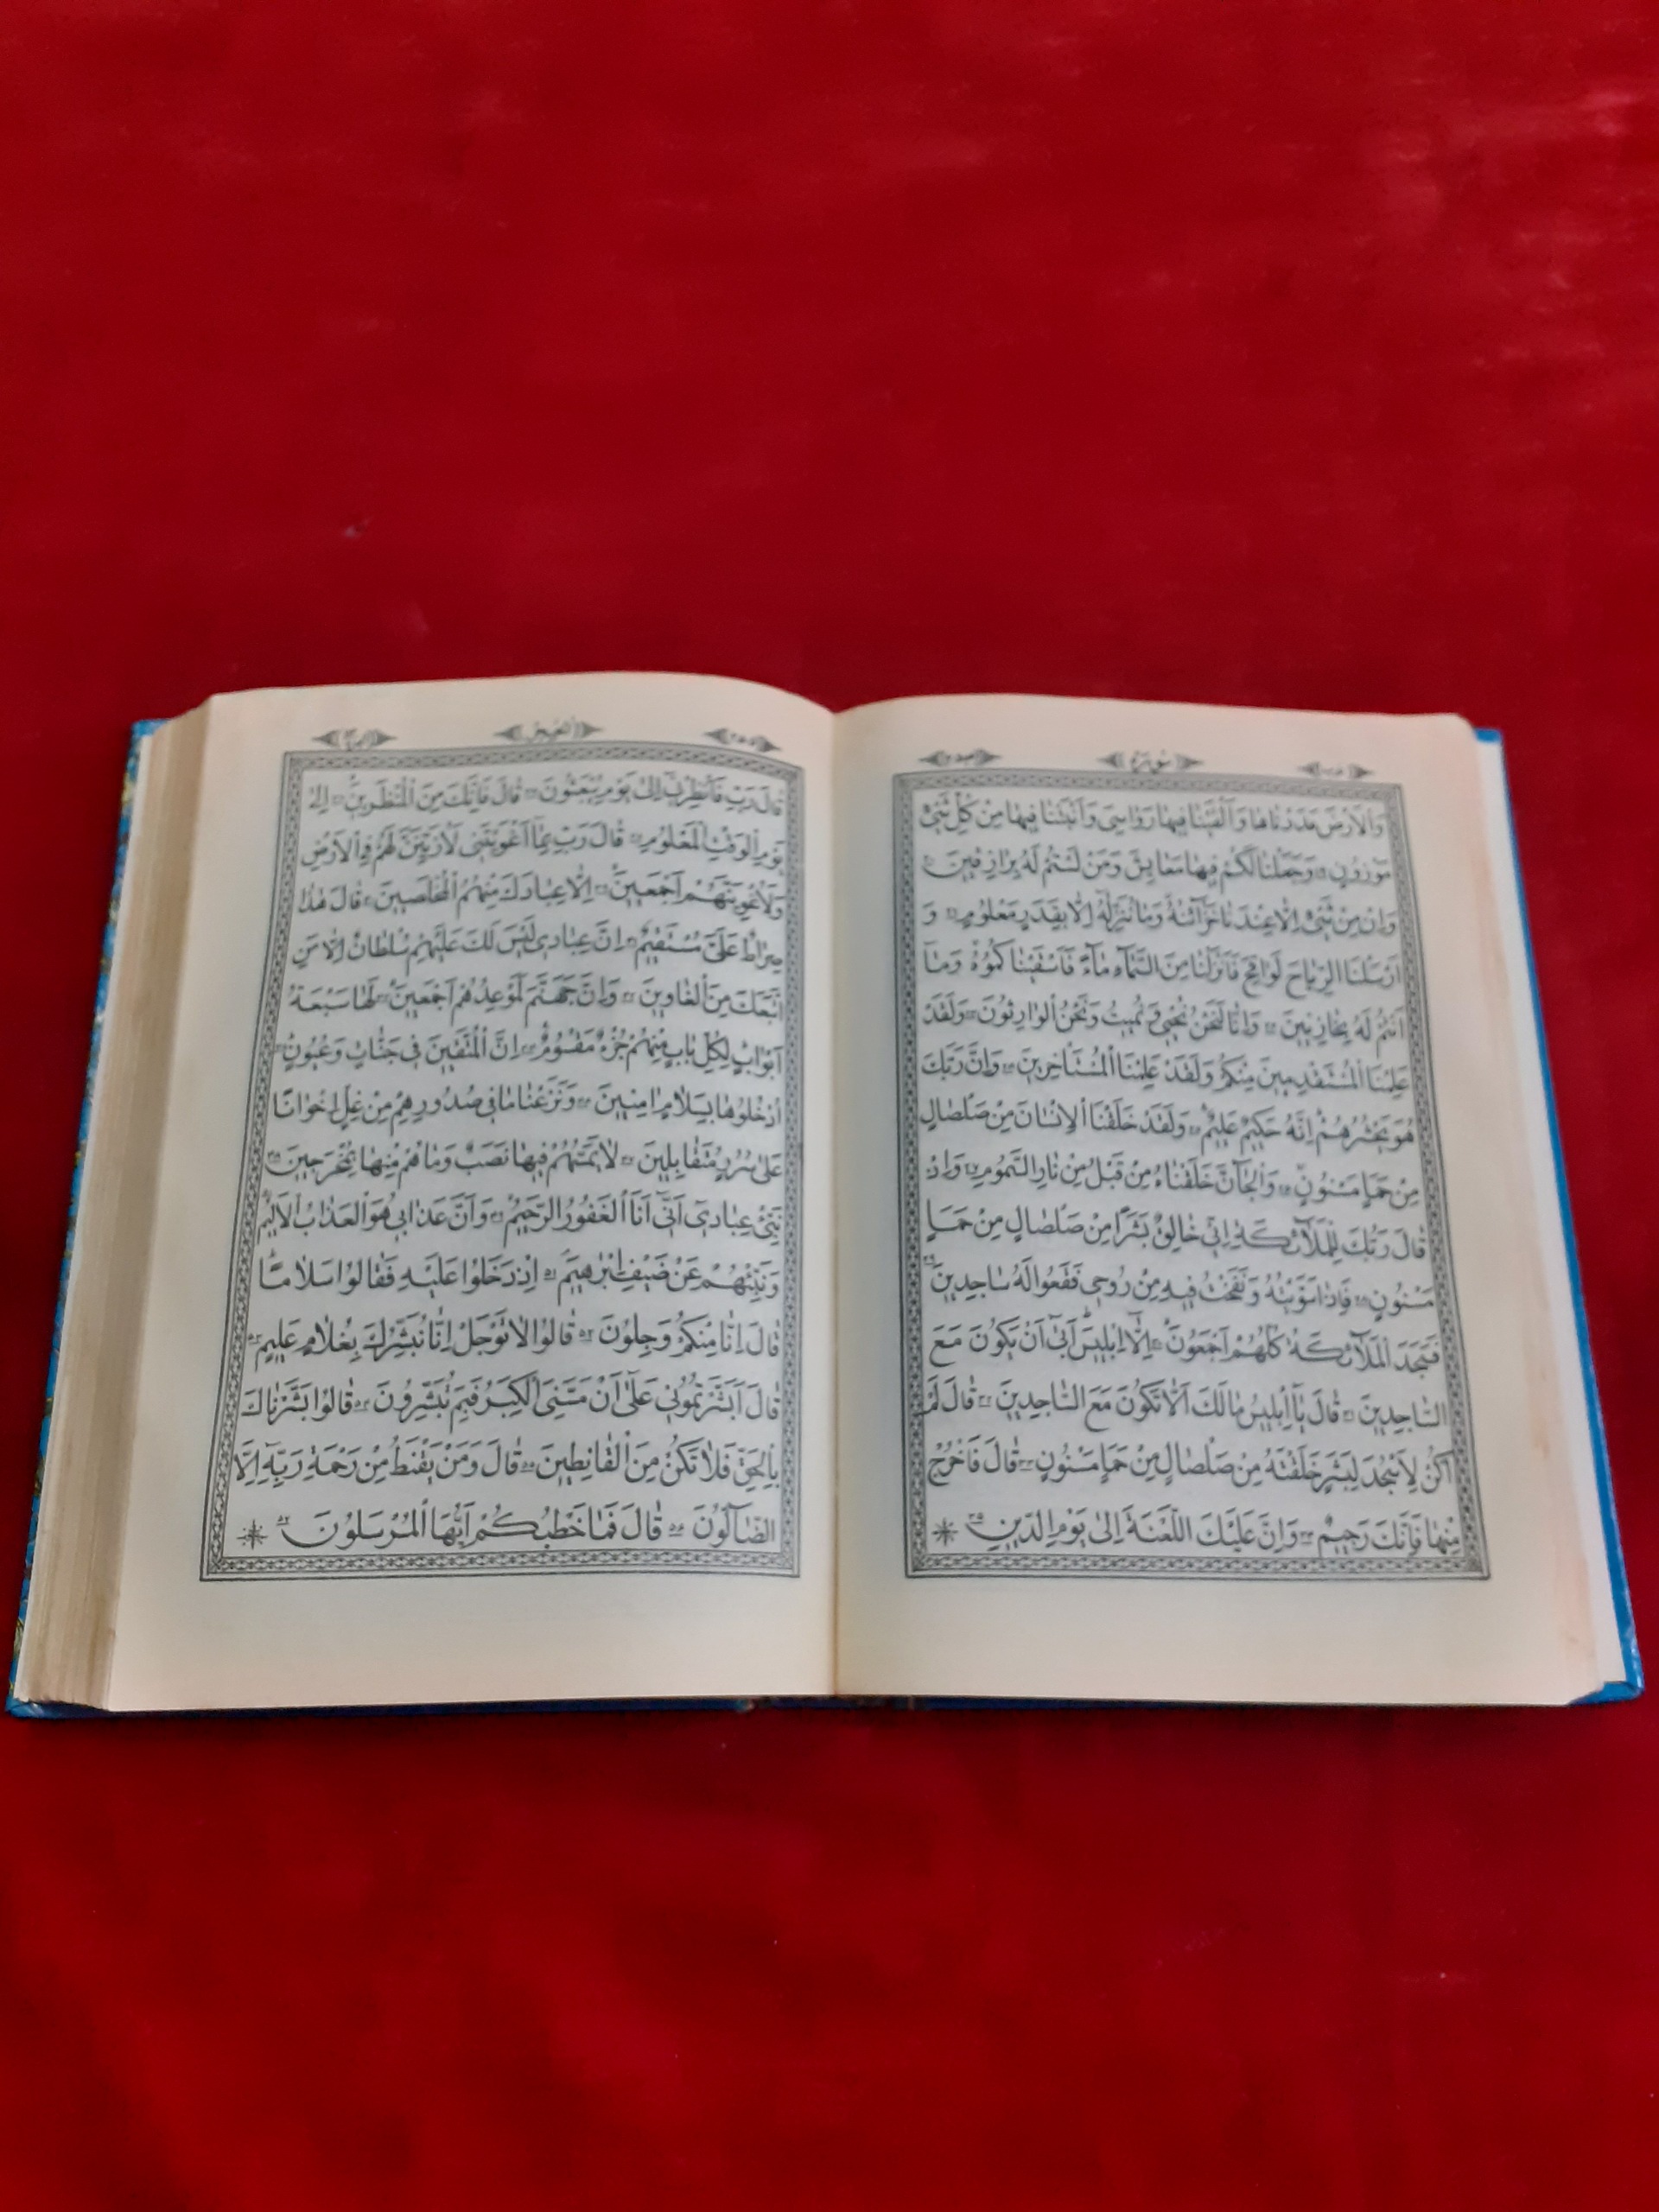 سُورَةُ
وَالْاَرْضَ مَدَدْنَاهَا وَاَلْقَيْنَا فِيهَا رَوَاسِىَ وَاَنْبَتْنَا فِيهَا مِنْ كُلِّ شَىْءٍ
مَوْزُونٍ ١٩ وَجَعَلْنَا لَكُمْ فِيهَا مَعَايِشَ وَمَنْ لَسْتُمْ لَهُ بِرَازِقِينَ ٢٠
وَاِنْ مِنْ شَىْءٍ اِلَّا عِنْدَنَا خَزَٓائِنُهُ وَمَا نُنَزِّلُهُٓ اِلَّا بِقَدَرٍ مَعْلُومٍ ٢١ وَ
اَرْسَلْنَا الرِّيَاحَ لَوَاقِحَ فَاَنْزَلْنَا مِنَ السَّمَٓاءِ مَٓاءً فَاَسْقَيْنَاكُمُوهُ وَمَٓا
اَنْتُمْ لَهُ بِخَازِنِينَ ٢٢ وَاِنَّا لَنَحْنُ نُحْيِ وَنُمِيتُ وَنَحْنُ الْوَارِثُونَ ٢٣ وَلَقَدْ
عَلِمْنَا الْمُسْتَقْدِمِينَ مِنْكُمْ وَلَقَدْ عَلِمْنَا الْمُسْتَأْخِرِينَ ٢٤ وَاِنَّ رَبَّكَ
هُوَ يَحْشُرُهُمْ اِنَّهُ حَكِيمٌ عَلِيمٌ ٢٥ وَلَقَدْ خَلَقْنَا الْاِنْسَانَ مِنْ صَلْصَالٍ
مِنْ حَمَاٍ مَسْنُونٍ ٢٦ وَالْجَٓانَّ خَلَقْنَاهُ مِنْ قَبْلُ مِنْ نَارِ السَّمُومِ ٢٧ وَاِذْ
قَالَ رَبُّكَ لِلْمَلٰٓئِكَةِ اِنِّى خَالِقٌ بَشَرًا مِنْ صَلْصَالٍ مِنْ حَمَاٍ
مَسْنُونٍ ٢٨ فَاِذَا سَوَّيْتُهُ وَنَفَخْتُ فِيهِ مِنْ رُوحِى فَقَعُوا لَهُ سَاجِدِينَ ٢٩
فَسَجَدَ الْمَلٰٓئِكَةُ كُلُّهُمْ اَجْمَعُونَ ٣٠ اِلَّٓا اِبْلِيسَ اَبٰٓى اَنْ يَكُونَ مَعَ
السَّاجِدِينَ ٣١ قَالَ يَٓا اِبْلِيسُ مَا لَكَ اَلَّا تَكُونَ مَعَ السَّاجِدِينَ ٣٢ قَالَ لَمْ
اَكُنْ لِاَسْجُدَ لِبَشَرٍ خَلَقْتَهُ مِنْ صَلْصَالٍ مِنْ حَمَاٍ مَسْنُونٍ ٣٣ قَالَ فَاخْرُجْ
مِنْهَا فَاِنَّكَ رَجِيمٌ ٣٤ وَاِنَّ عَلَيْكَ اللَّعْنَةَ اِلٰى يَوْمِ الدِّينِ ٣٥
قَالَ رَبِّ فَاَنْظِرْنِٓى اِلٰى يَوْمِ يُبْعَثُونَ ٣٦ قَالَ فَاِنَّكَ مِنَ الْمُنْظَرِينَ ٣٧ اِلٰى
يَوْمِ الْوَقْتِ الْمَعْلُومِ ٣٨ قَالَ رَبِّ بِمَٓا اَغْوَيْتَنِى لَاُزَيِّنَنَّ لَهُمْ فِى الْاَرْضِ
وَلَاُغْوِيَنَّهُمْ اَجْمَعِينَ ٣٩ اِلَّا عِبَادَكَ مِنْهُمُ الْمُخْلَصِينَ ٤٠ قَالَ هٰذَا
صِرَاطٌ عَلَىَّ مُسْتَقِيمٌ ٤١ اِنَّ عِبَادِى لَيْسَ لَكَ عَلَيْهِمْ سُلْطَانٌ اِلَّا مَنِ
اتَّبَعَكَ مِنَ الْغَاوِينَ ٤٢ وَاِنَّ جَهَنَّمَ لَمَوْعِدُهُمْ اَجْمَعِينَ ٤٣ لَهَا سَبْعَةُ
اَبْوَابٍ لِكُلِّ بَابٍ مِنْهُمْ جُزْءٌ مَقْسُومٌ ٤٤ اِنَّ الْمُتَّقِينَ فِى جَنَّاتٍ وَعُيُونٍ ٤٥
اُدْخُلُوهَا بِسَلَامٍ اٰمِنِينَ ٤٦ وَنَزَعْنَا مَا فِى صُدُورِهِمْ مِنْ غِلٍّ اِخْوَانًا
عَلٰى سُرُرٍ مُتَقَابِلِينَ ٤٧ لَا يَمَسُّهُمْ فِيهَا نَصَبٌ وَمَا هُمْ مِنْهَا بِمُخْرَجِينَ ٤٨
نَبِّئْ عِبَادِٓى اَنِّٓى اَنَا الْغَفُورُ الرَّحِيمُ ٤٩ وَاَنَّ عَذَابِى هُوَ الْعَذَابُ الْاَلِيمُ
وَنَبِّئْهُمْ عَنْ ضَيْفِ اِبْرٰهِيمَ ٥١ اِذْ دَخَلُوا عَلَيْهِ فَقَالُوا سَلَامًا
قَالَ اِنَّا مِنْكُمْ وَجِلُونَ ٥٢ قَالُوا لَا تَوْجَلْ اِنَّا نُبَشِّرُكَ بِغُلَامٍ عَلِيمٍ ٥٣
قَالَ اَبَشَّرْتُمُونِى عَلٰٓى اَنْ مَسَّنِىَ الْكِبَرُ فَبِمَ تُبَشِّرُونَ ٥٤ قَالُوا بَشَّرْنَاكَ
بِالْحَقِّ فَلَا تَكُنْ مِنَ الْقَانِطِينَ ٥٥ قَالَ وَمَنْ يَقْنَطُ مِنْ رَحْمَةِ رَبِّهِٓ اِلَّا
الضَّٓالُّونَ ٥٦ قَالَ فَمَا خَطْبُكُمْ اَيُّهَا الْمُرْسَلُونَ ٥٧